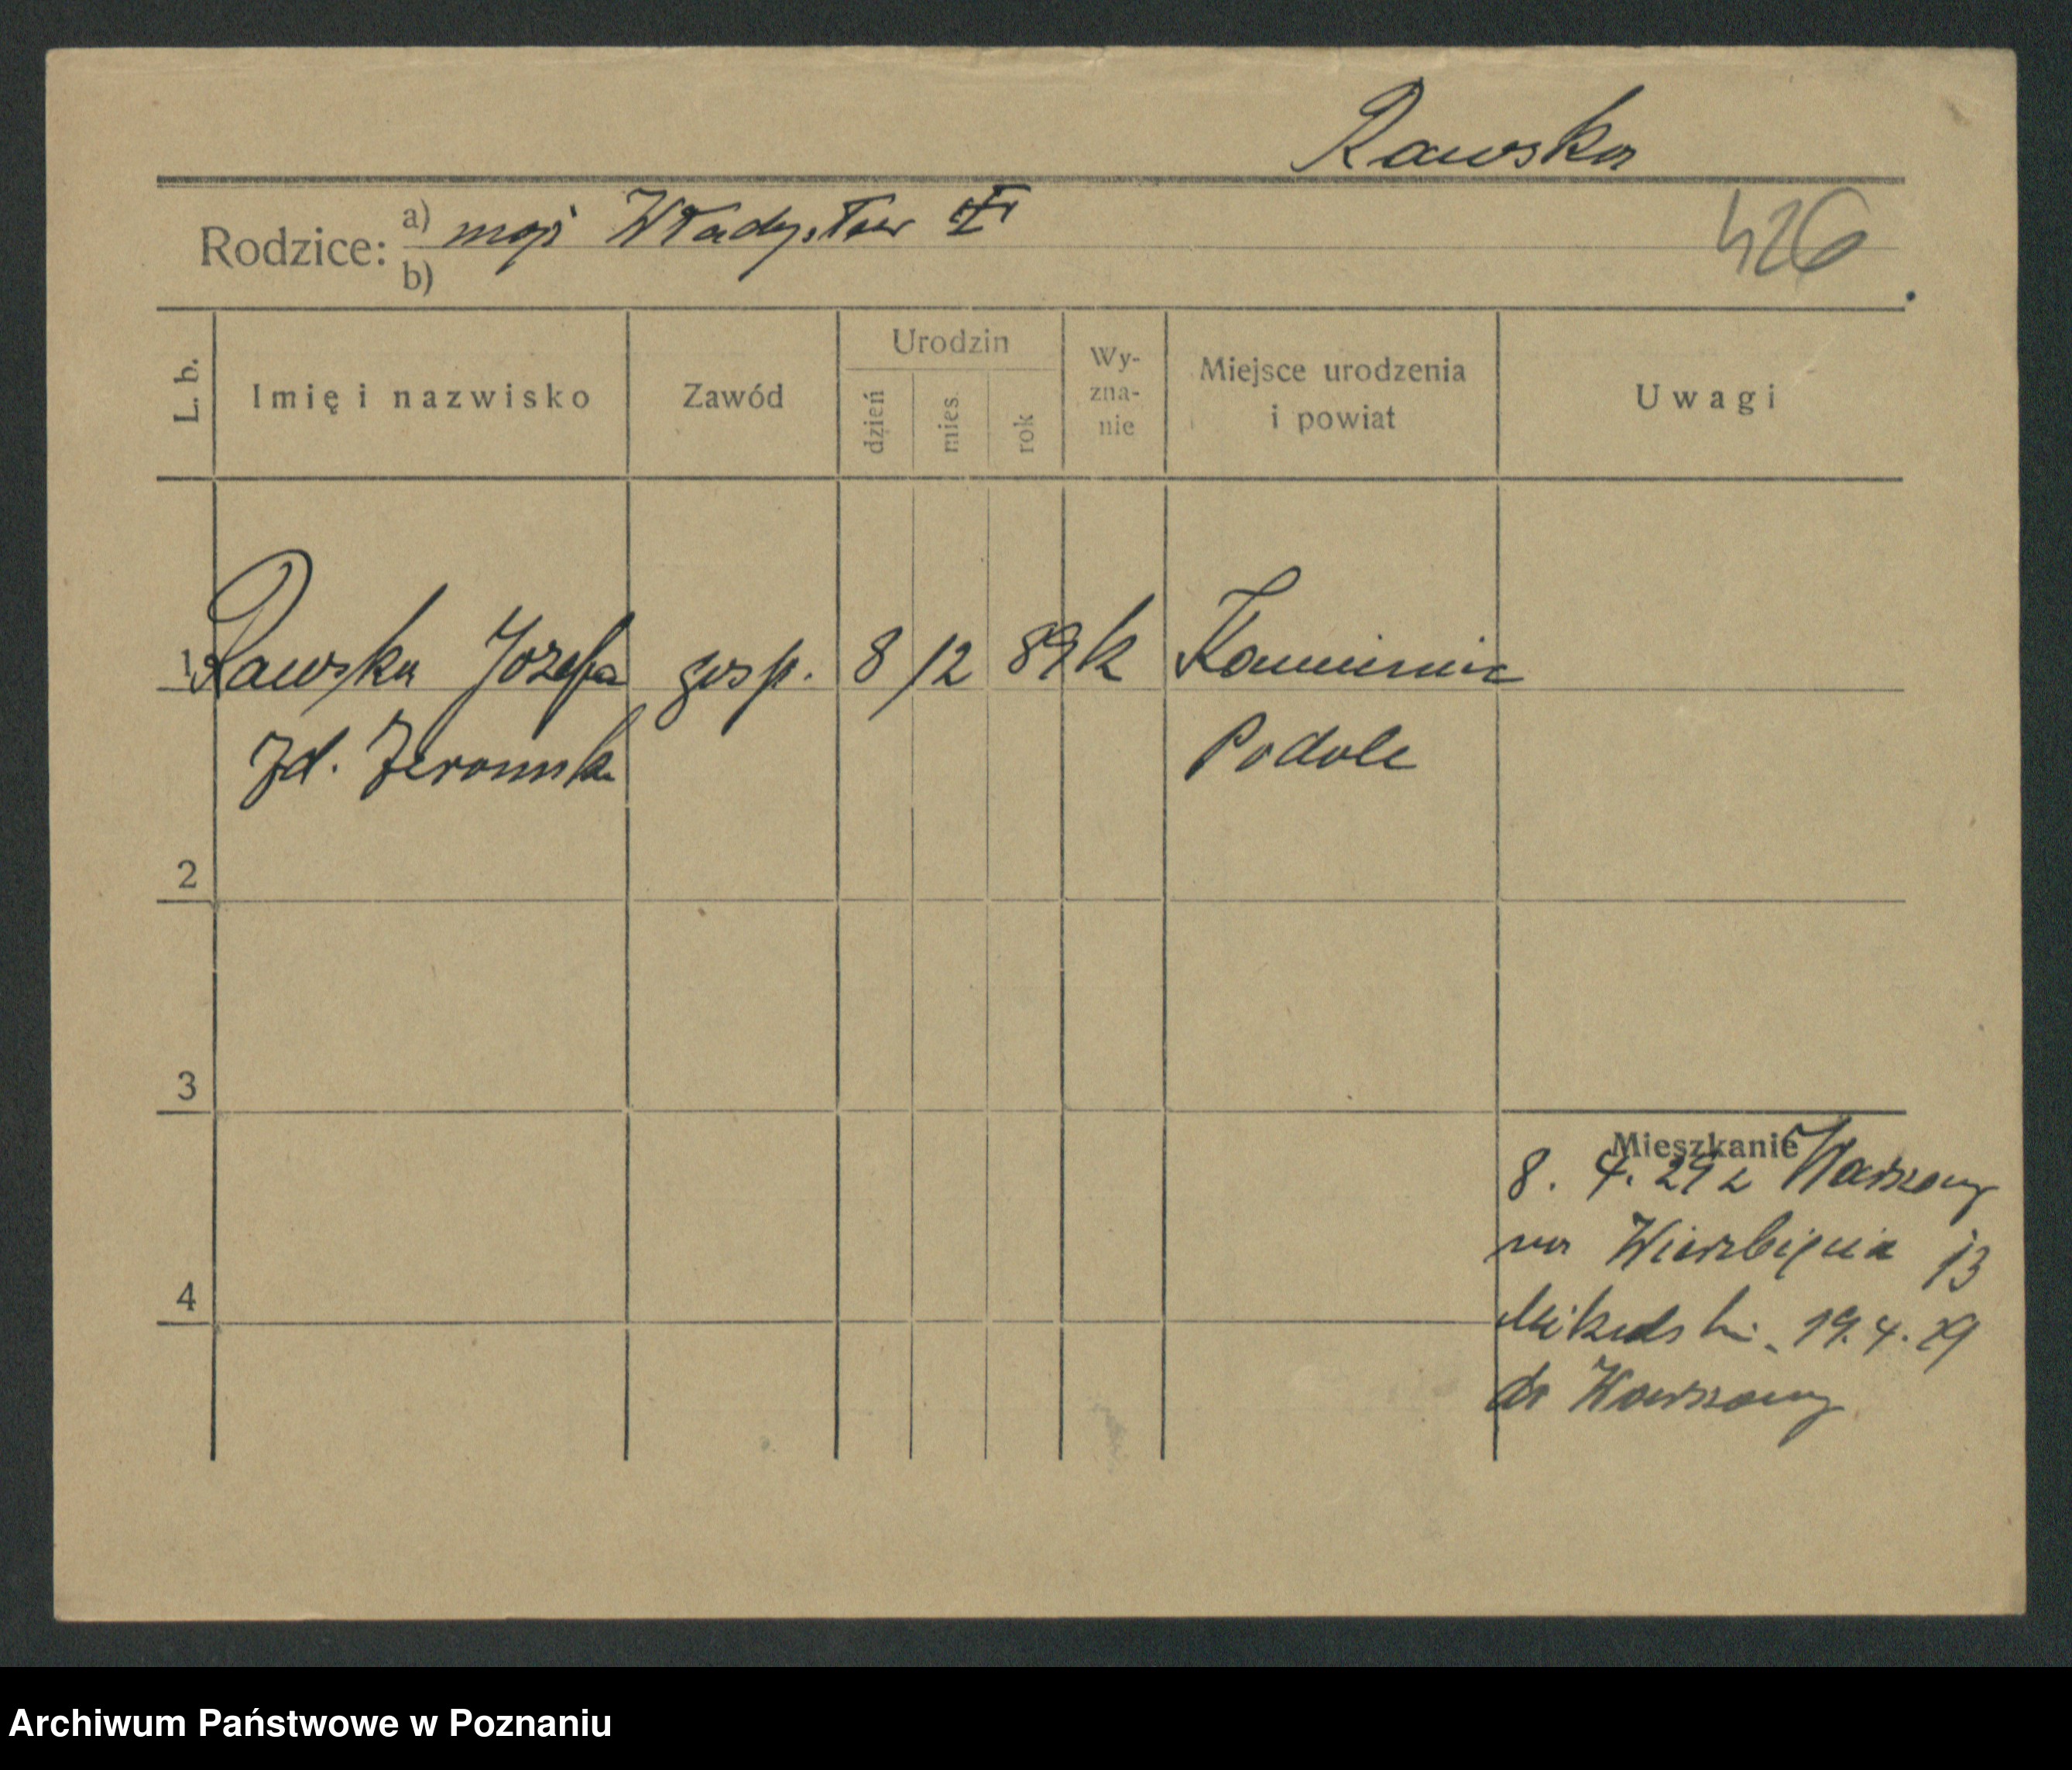 Rawska
Rodzice: a) mąż Władysław
b)
426
L. b. Imię i nazwisko Zawód Urodzin dzień mies. rok Wy-zna-nie Miejsce urodzenia i powiat Uwagi
1 Rawska Józefa gosp. 8/12 89 k Kamieniec
Podole
2
3
4
Mieszkanie
8. 4. 29 z Warszawy
na Wierzbięcia 13
19. 4. 29
do Warszawy
Archiwum Państwowe w Poznaniu